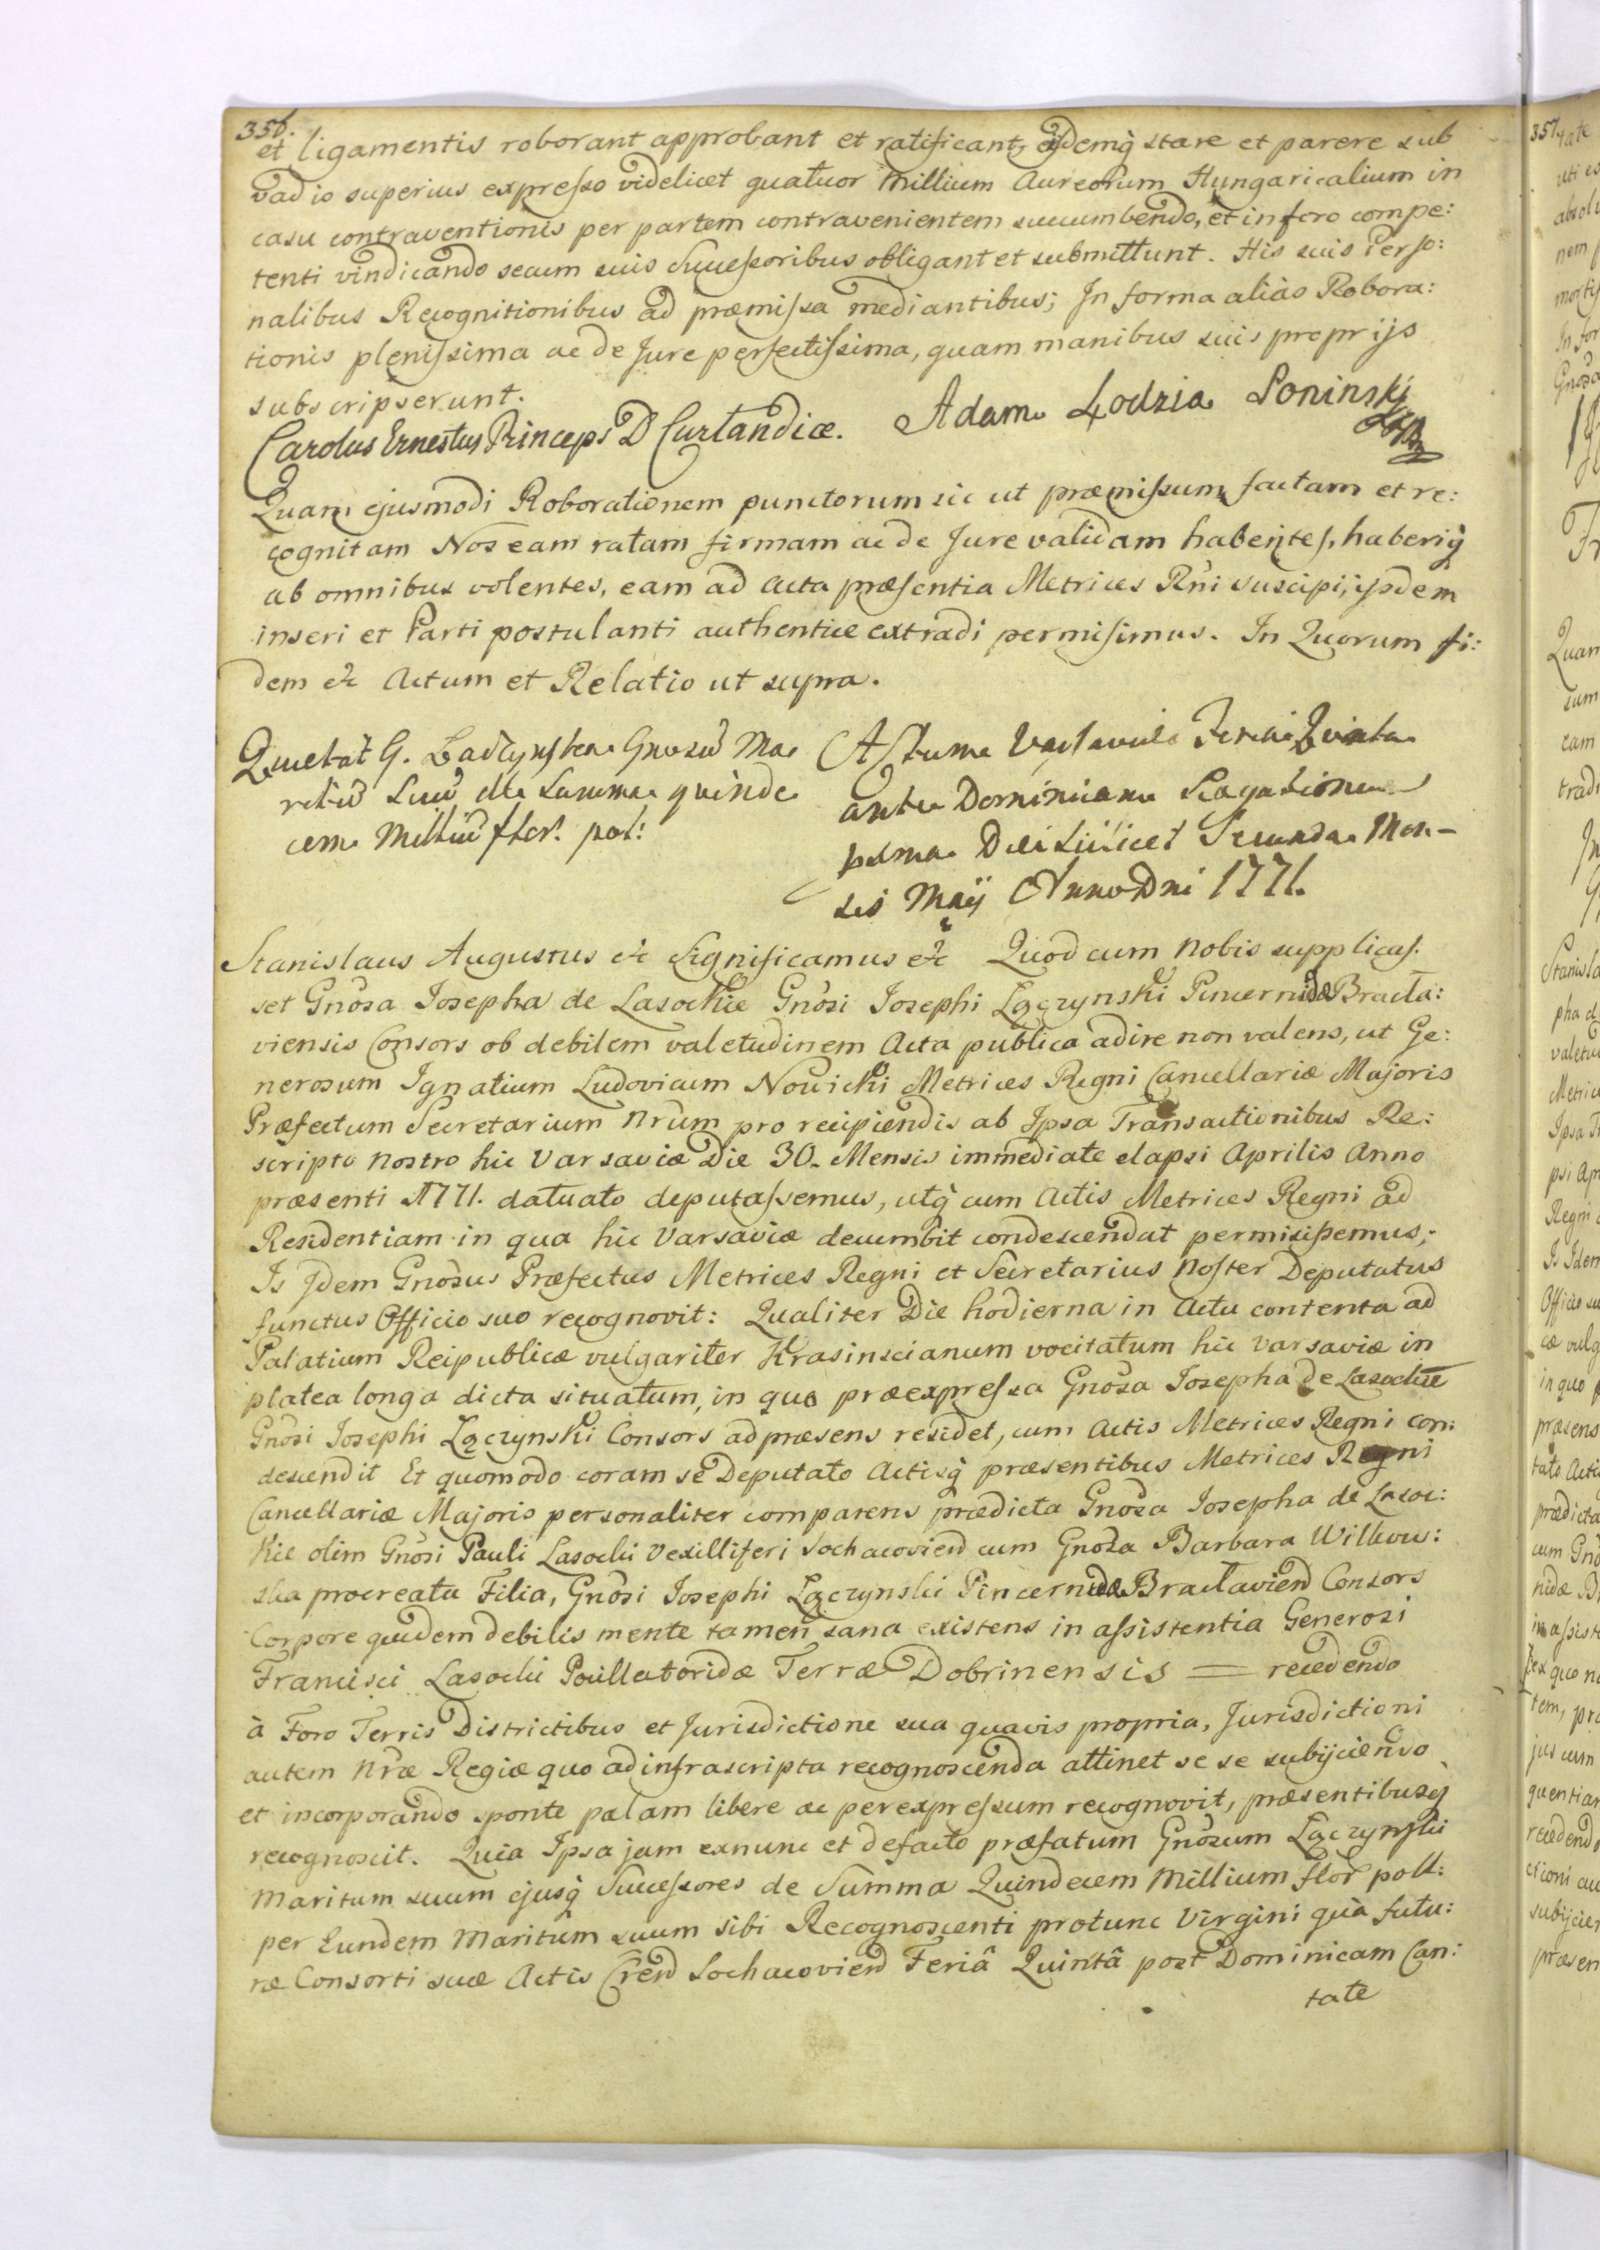 356.
et ligamentis roborant approbant et ratificant, ijsdemq̀ stare et parere sub
vadio superius expresso videlicet quatuor Millium Aureorum Hungaricalium in
casu contraventionis per partem contravenientem succumbendo, et in foro compe:
tenti vindicando secum suis Successoribus obligant et submittunt. His suis Perso:
nalibus Recognitionibus ad præmissa mediantibus; In forma alias Robora:
tionis plenissima ac de Jure perfectissima, quam manibus suis proprijs
subscripserunt.
Carolus Ernestus Princeps D Curlandiæ. Adam Łodzia Poninski
Quam ejusmodi Roborationem punctorum sic ut præmissum factam et re:
cognitam Nos eam ratam firmam ac de Jure validam habentes, haberiq̀
ab omnibus volentes, eam ad Acta præsentia Metrices Rn̄i suscipi, ijsdem
inseri et Parti postulanti authentice extradi permisimus. In Quorum fi:
dem &c Actum et Relatio ut supra.
Quietat G. Łaczynska Gnosu Ma
ritū Suū de Summa quinde
cem Milliū flor. pol:
Actum Varsaviæ Feria Quinta
ante Dominicam Rogationum
pxma Die scilicet Secunda Men-
sis Maij Anno Dni 1771.
Stanislaus Augustus &c Significamus &c Quod cum Nobis supplicas:
set Gnosa Josepha de Lasockie Gnosi Josephi Łączynski Pincernidæ Bracła:
viensis Consors ob debilem valetudinem Acta publica adire non valens, ut Ge:
nerosum Ignatium Ludovicum Nowicki Metrices Regni Cancellariæ Majoris
Præfectum Secretarium Nrum pro recipiendis ab Ipsa Transactionibus Re:
scripto Nostro hic Varsaviæ Die 30. Mensis immediate elapsi Aprilis Anno
præsenti 1771. datuato deputassemus, utq̀ cum Actis Metrices Regni ad
Residentiam in qua hic Varsaviæ decumbit condescendat permisissemus;
Is Idem Gnosus Præfectus Metrices Regni et Secretarius Noster Deputatus
functus Officio suo recognovit: Qualiter Die hodierna in Actu contenta ad
Palatium Reipublicæ vulgariter Krasinscianum vocitatum hic Varsaviæ in
platea longa dicta situatum, in quo præexpressa Gnosa Josepha de Lasockie
Gnosi Josephi Łączynski Consors ad præsens residet, cum Actis Metrices Regni con:
descendit Et quomodo coram se Deputato Actisq̀ præsentibus Metrices Regni
Cancellariæ Majoris personaliter comparens prædicta Gnosa Josepha de Lasoc:
kie olim Gnosi Pauli Lasocki Vexilliferi Sochacovien cum Gnosa Barbara Wilkow:
ska procreata Filia, Gnosi Josephi Łączynski Pincernidæ Bracłavien Consors
Corpore quidem debilis mente tamen sana existens in assistentia Generosi
Francisci Lasocki Pocillatoridæ Terræ Dobrinensis = recedendo
à Foro Terris Districtibus et Jurisdictione sua quavis propria, Jurisdictioni
autem Nræ Regiæ quo ad infrascripta recognoscenda attinet se se subijciendo
et incorporando sponte palam libere ac per expressum recognovit, præsentibusq̀
recognoscit. Quia Ipsa jam exnunc et defacto præfatum Gnosum Łączynski
Maritum suum ejusq̀ Successores de Summa Quindecem Millium flor poll:
per Eundem Maritum suum sibi Recognoscenti protunc Virgini quà futu:
ræ Consorti suæ Actis Cren Sochacovien Feriâ Quintâ post Dominicam Can:
tate